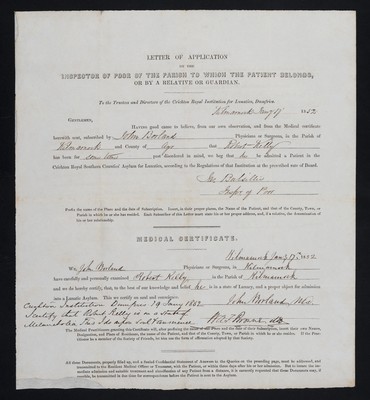 LETTER OF APPLICATION
BY THE
INSPECTOR OF POOR OF THE PARISH TO WHICH THE PATIENT BELONGS,
OR BY A RELATIVE OR GUARDIAN.
To the Trustees and Directors of the Crichton Royal Institution for Lunatics, Dumfries.
Kilmarnock Jany 17 1852
GENTLEMEN,
HAVING good cause to believe, from our own observation, and from the Medical certificate
herewith sent, subscribed by John Borland Physicians or Surgeons, in the Parish of
Kilmarnock and County of Ayr that Robert Kelly
has been for some time past disordered in mind, we beg that he be admitted a Patient in the
Crichton Royal Southern Counties' Asylum for Lunatics, according to the Regulations of that Institution at the prescribed rate of Board.
Inspr of Poor
Prefix the name of the Place and the date of Subscription. Insert, in their proper places, the Name of the Patient, and that of the County, Town, or
Parish in which he or she has resided. Each Subscriber of this Letter must state his or her proper address, and, if a relative, the denomination of
his or her relationship.
MEDICAL CERTIFICATE.
Kilmarnock Jany 17th 1852
We John Borland Physicians, or Surgeons, in Kilmarnock
have carefully and personally examined Robert Kelly in the Parish of Kilmarnock
and we do hereby certify, that, to the best of our knowledge and belief he is in a state of Lunacy, and a proper object for admission
into a Lunatic Asylum. This we certify on soul and conscience.
John Borland M.D.
Crichton Institution Dumfries 19 Jany 1852
I certify that Robert Kelly is in a State of
Melancholia. This I do upon Soul & Conscience
The Medical Practitioners granting this Certificate will, after prefixing the name of the Place and the date of Subscription, insert their own Names,
Designation, and Place of Residence, the name of the Patient, and that of the County, Town, or Parish in which he or she resides. If the Practitioner be a member of the Society of Friends, he may use the form of affirmation adopted by that Society.
All these Documents, properly filled up, and a Sealed Confidential Statement of Answers to the Queries on the preceding page, must be addressed, and
transmitted to the Resident Medical Officer or Treasurer, with the Patient, or within three days after his or her admission. But to insure the immediate admission and suitable treatment and classification of any Patient from a distance, it is earnestly requested that these Documents may, if
possible, be transmitted in due time for correspondence before the Patient is sent to the Asylum.